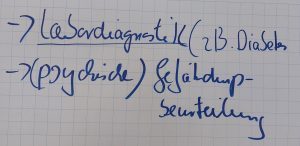 -> Labordiagnostik (zB. Diabetes
-> (psychische) Gefährdungs-
beurteilung